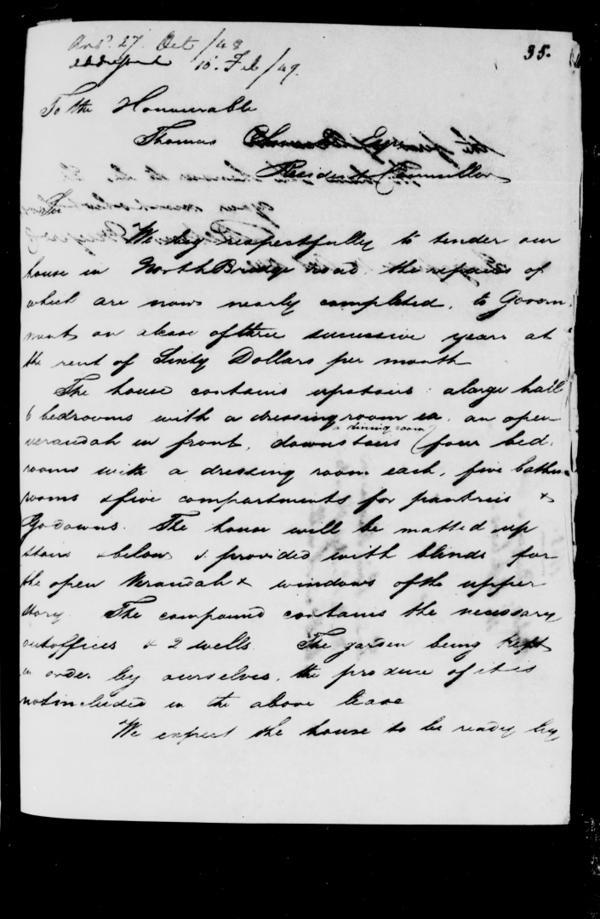 Ansd. 27. Oct /48
15. Feb /49.
35.
To the Honourable
Thomas Church Esqre
Resident Councillor
Sir
We beg respectfully to tender our
house in North Bridge road the repairs of
which are now nearly completed, to Govern
ment on a lease of three successive years at
the rent of Sixty Dollars per month
The house contains upstairs: a large hall
6 bedrooms with a dressing room in an open
verandah in front, downstairs (a dining room four bed.
rooms with a dressing room each, five bathe
rooms & five compartments for pantries &
Godowns. The house will be matted up
stairs & below & provided with blinds for
the open Verandah & windows of the upper
story. The compound contains the necessary
outoffices & 2 wells. The garden being kept
in order by ourselves, the produce of it is
not included in the above lease
We expect the house to be ready by